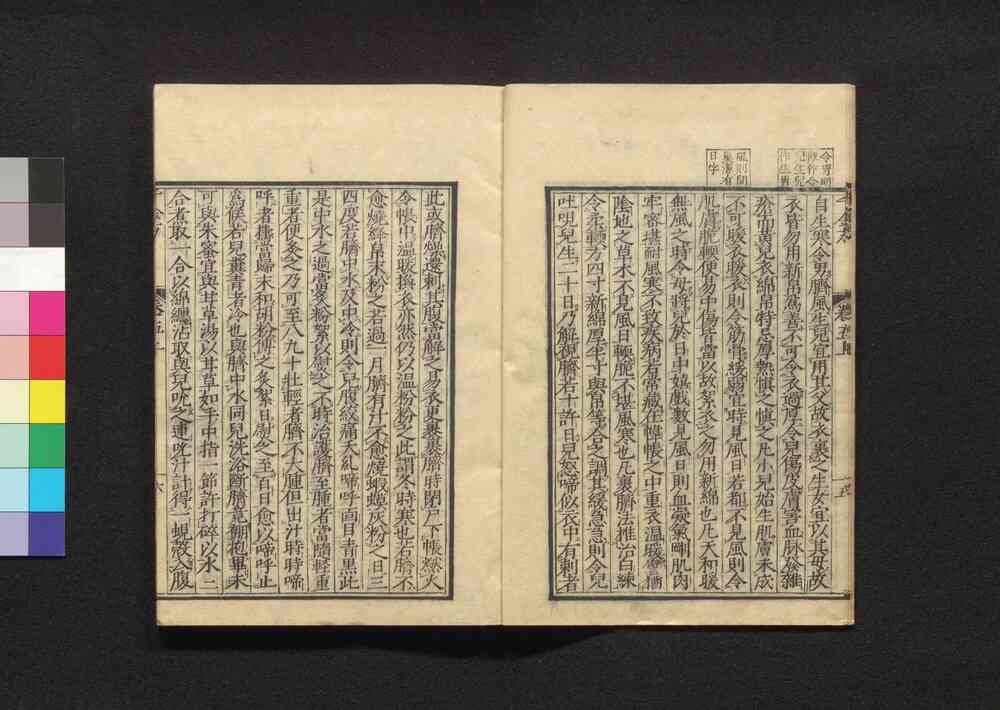 令男
自生寒令男臍風生兒宜用其父故衣裹之生女宜以其母故
衣皆勿用新帛爲善不可令衣過厚令兒傷皮膚害血脉發雜
瘡而黃兒衣綿帛特忌厚熱慎之慎之凡小兒始生肌膚未成
不可暖衣暖衣則令筋骨緩弱宜時見風日若都不見風則令
肌膚脆軟便易中傷皆當以故絮衣之勿用新綿也凡天和暖
無風之時令母將兒於日中嬉戲數見風日則血凝氣剛肌肉
牢密堪耐風寒不致疾病若常藏在幃帳之中重衣溫暖譬猶
陰地之草木不見風日軟脆不堪風寒也凡裹臍法椎治白練
令柔軟方四寸新綿厚半寸與帛等合之調其緩急急則令兒
吐哯兒生二十日乃解視臍若十許日兒怒啼似衣中有刺者
此或臍燥還刺其腹當解之易衣更裹裹臍時閉戶下帳燃火
令帳中溫暖換衣亦然仍以溫粉粉之此謂冬時寒也若臍不
愈燒絳帛末粉之若過一月臍有汁不愈燒蝦蟆灰粉之日三
四度若臍中水及中冷則令兒腹絞痛夭糺啼呼面目青黑此
是中水之過當灸粉絮以熨之不時治護臍至腫者當隨輕重
重者便灸之乃可至八九十壯輕者臍不大腫但出汁時時啼
呼者擣當歸末和胡粉傅之灸絮日熨之至百日愈以啼呼止
爲候若兒糞青者冷也與臍中水同兒洗浴斷臍竟繃抱畢未
可與朱蜜宜與甘草湯以甘草如手中指一節許打碎以水二
合煮取一合以綿纏沾取與兒吮之連吮汁計得一蜆殼入腹